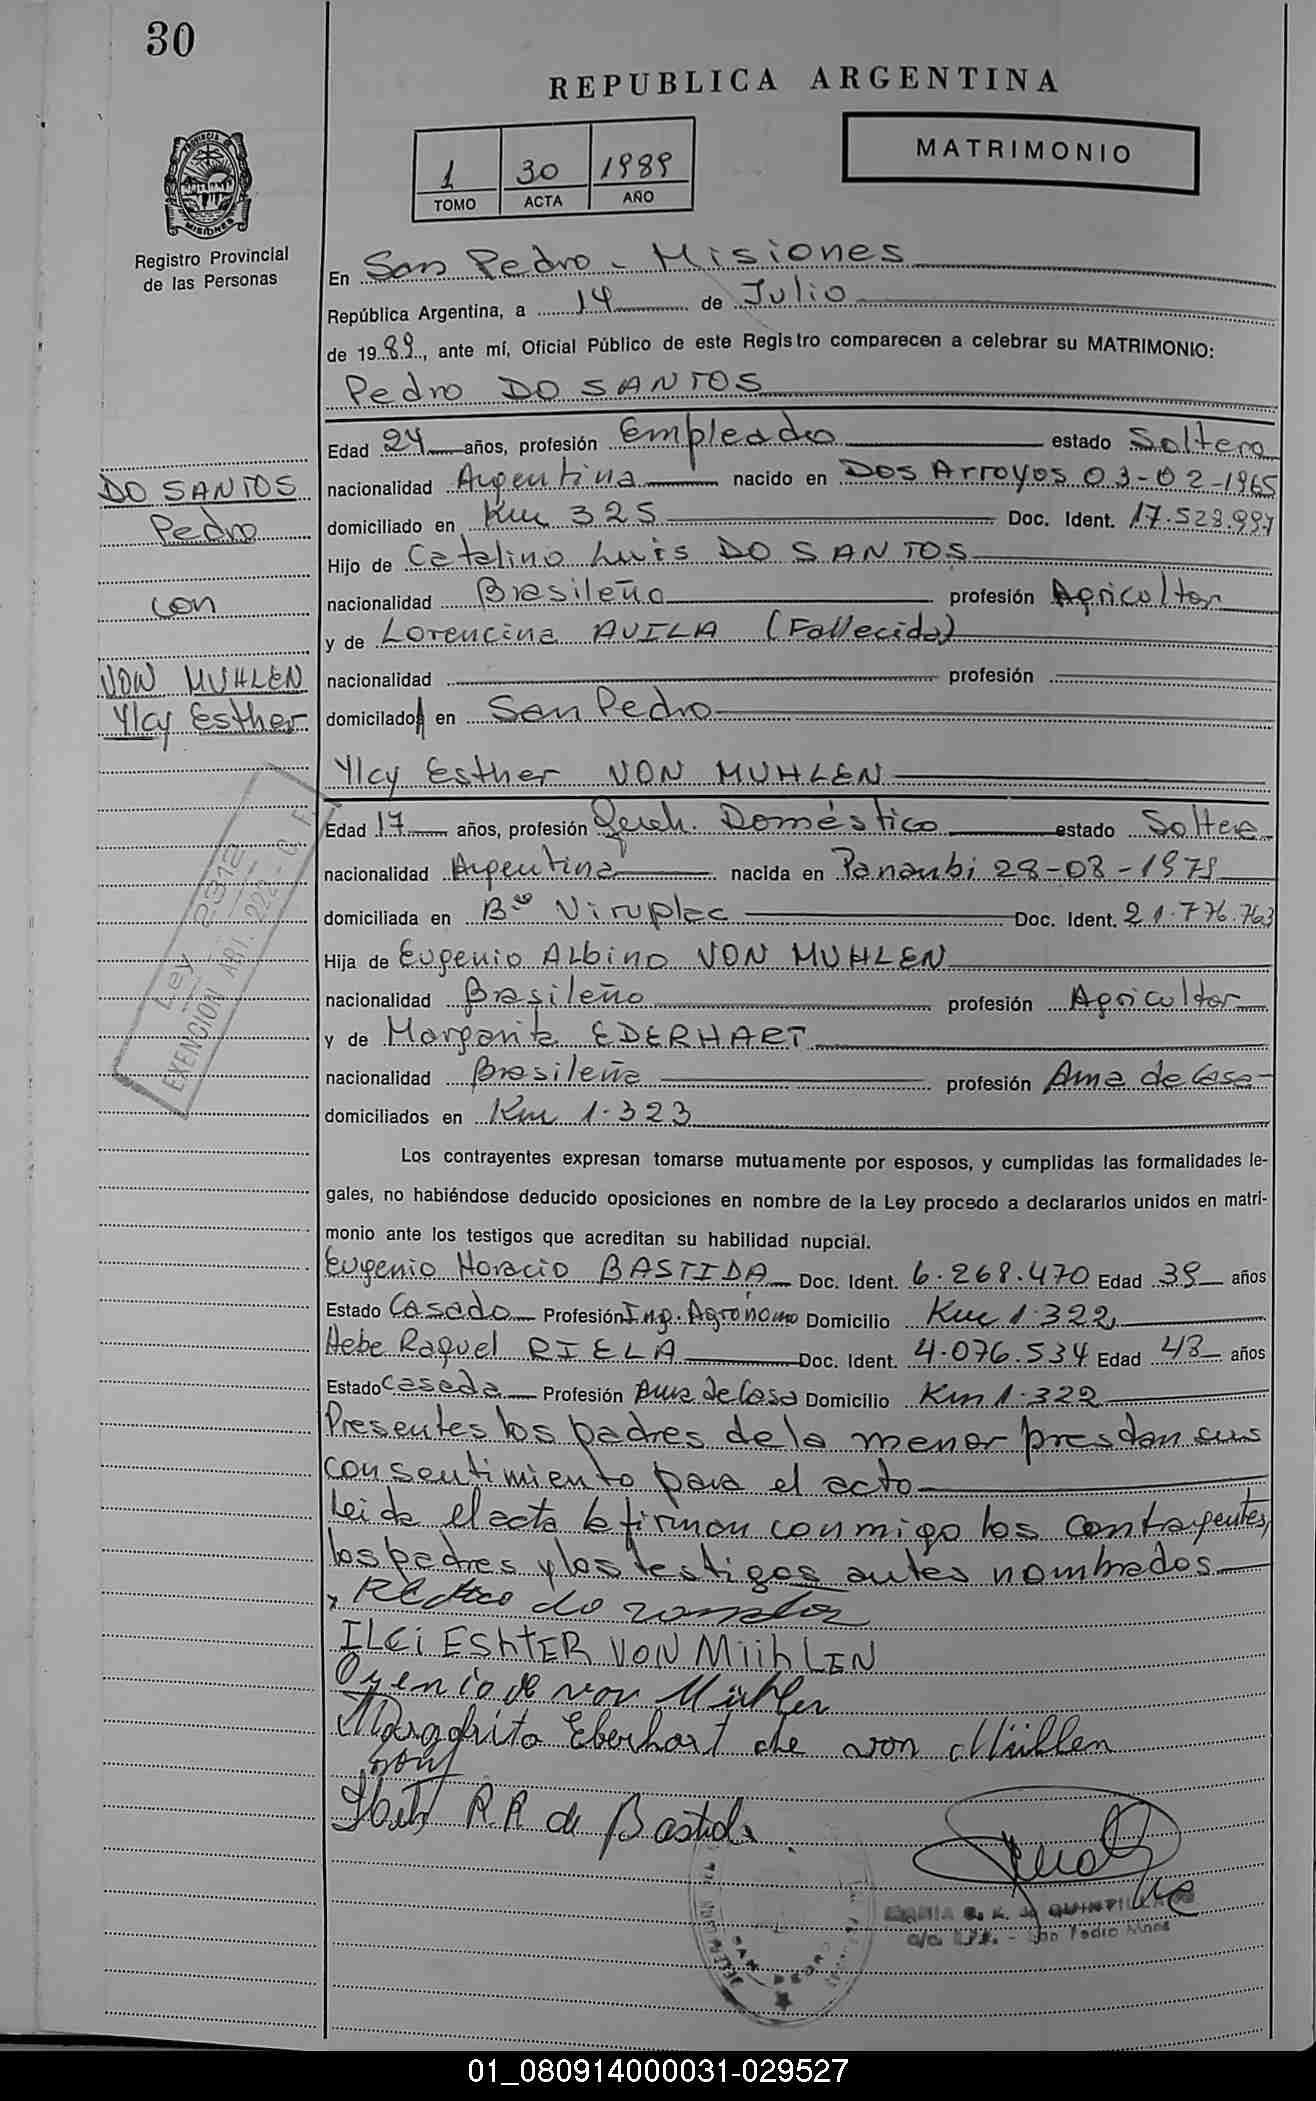 30
REPUBLICA ARGENTINA
1 30 1989
TOMO ACTA AÑO
MATRIMONIO
PROVINCIA
MISIONES
Registro Provincial
de las Personas
En San Pedro - Misiones
República Argentina, a 14 de Julio
de 1989, ante mí, Oficial Público de este Registro comparecen a celebrar su MATRIMONIO:
Pedro DO SANTOS
Edad 24 años, profesión Empleado estado Soltero
DO SANTOS
nacionalidad Argentina nacido en Dos Arroyos 03-02-1965
Pedro
domiciliado en Km 325 Doc. Ident. 17.528.997
Hijo de Catalino Luis DO SANTOS
con
nacionalidad Brasileño profesión Agricultor
y de Lorencina AVILA (Fallecida)
VON MUHLEN
nacionalidad profesión
Ylcy Esther
domicilados en San Pedro
Ylcy Esther VON MUHLEN
Edad 17 años, profesión Doméstico estado Soltera
nacionalidad Argentina nacida en Panambi 28-08-1971
domiciliada en Bº Viruplac Doc. Ident. 21.776.763
Hija de Eugenio Albino VON MUHLEN
nacionalidad Brasileño profesión Agricultor
y de Margarita EDERHART
nacionalidad Brasileña profesión Ama de Casa
domiciliados en Km 1.323
Ley 2312
EXENCION ART. 222 - C. F.
Los contrayentes expresan tomarse mutuamente por esposos, y cumplidas las formalidades le-
gales, no habiéndose deducido oposiciones en nombre de la Ley procedo a declararlos unidos en matri-
monio ante los testigos que acreditan su habilidad nupcial.
Eugenio Horacio BASTIDA Doc. Ident. 6.268.470 Edad 39 años
Estado Casado Profesión Ing. Agrónomo Domicilio Km 1.322
Hebe Raquel RIELA Doc. Ident. 4.076.534 Edad 43 años
Estado Casada Profesión Ama de Casa Domicilio Km 1.322
Presentes los padres de la menor prestan sus
consentimiento para el acto
Leida el acta la firman conmigo los contrayentes,
los padres y los testigos antes nombrados
x Pedro do santos
ILCi EShtER VON MüihLEN
von Mühlen
Margarita Eberhart de von Mühlen
R.R de Bastida
MARIA
SAN PEDRO
San Pedro Mnes
01_080914000031-029527